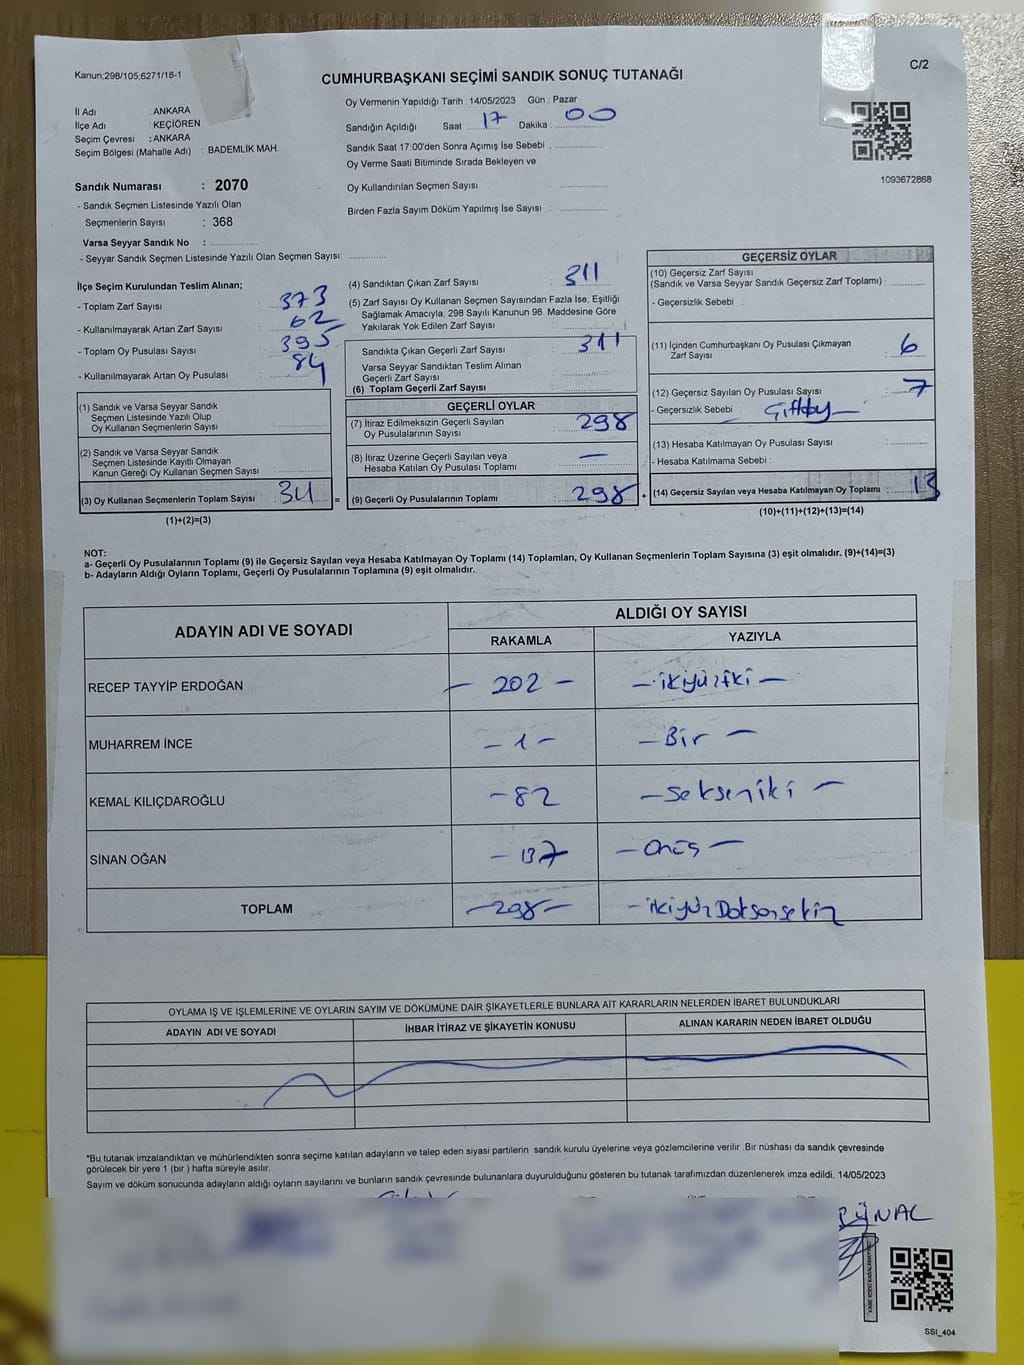 Kanun;298/105;6271/18-1
C/2
CUMHURBAŞKANI SEÇİMİ SANDIK SONUÇ TUTANAĞI
İl Adı : ANKARA
İlçe Adı : KEÇİÖREN
Seçim Çevresi : ANKARA
Seçim Bölgesi (Mahalle Adı) : BADEMLİK MAH.
Oy Vermenin Yapıldığı Tarih : 14/05/2023 Gün : Pazar
Sandığın Açıldığı Saat 17 Dakika : 00
Sandık Saat 17:00'den Sonra Açımış İse Sebebi :
Oy Verme Saati Bitiminde Sırada Bekleyen ve
Oy Kullandırılan Seçmen Sayısı :
Birden Fazla Sayım Döküm Yapılmış İse Sayısı :
1093672868
Sandık Numarası : 2070
- Sandık Seçmen Listesinde Yazılı Olan
Seçmenlerin Sayısı : 368
Varsa Seyyar Sandık No :
- Seyyar Sandık Seçmen Listesinde Yazılı Olan Seçmen Sayısı:
İlçe Seçim Kurulundan Teslim Alınan;
- Toplam Zarf Sayısı : 373
- Kullanılmayarak Artan Zarf Sayısı : 62
- Toplam Oy Pusulası Sayısı : 395
- Kullanılmayarak Artan Oy Pusulası : 84
(1) Sandık ve Varsa Seyyar Sandık
Seçmen Listesinde Yazılı Olup
Oy Kullanan Seçmenlerin Sayısı :
(2) Sandık ve Varsa Seyyar Sandık
Seçmen Listesinde Kayıtlı Olmayan
Kanun Gereği Oy Kullanan Seçmen Sayısı :
(3) Oy Kullanan Seçmenlerin Toplam Sayısı : 311 =
(1)+(2)=(3)
(4) Sandıktan Çıkan Zarf Sayısı : 311
(5) Zarf Sayısı Oy Kullanan Seçmen Sayısından Fazla İse, Eşitliği
Sağlamak Amacıyla, 298 Sayılı Kanunun 98. Maddesine Göre
Yakılarak Yok Edilen Zarf Sayısı :
Sandıkta Çıkan Geçerli Zarf Sayısı : 311
Varsa Seyyar Sandıktan Teslim Alınan
Geçerli Zarf Sayısı :
(6) Toplam Geçerli Zarf Sayısı :
GEÇERLİ OYLAR
(7) İtiraz Edilmeksizin Geçerli Sayılan
Oy Pusulalarının Sayısı : 298
(8) İtiraz Üzerine Geçerli Sayılan veya
Hesaba Katılan Oy Pusulası Toplamı : —
(9) Geçerli Oy Pusulalarının Toplamı : 298 +
GEÇERSİZ OYLAR
(10) Geçersiz Zarf Sayısı
(Sandık ve Varsa Seyyar Sandık Geçersiz Zarf Toplamı) :
- Geçersizlik Sebebi :
(11) İçinden Cumhurbaşkanı Oy Pusulası Çıkmayan
Zarf Sayısı : 6
(12) Geçersiz Sayılan Oy Pusulası Sayısı : 7
- Geçersizlik Sebebi :
(13) Hesaba Katılmayan Oy Pusulası Sayısı :
- Hesaba Katılmama Sebebi :
(14) Geçersiz Sayılan veya Hesaba Katılmayan Oy Toplamı : 13
(10)+(11)+(12)+(13)=(14)
NOT:
a- Geçerli Oy Pusulalarının Toplamı (9) ile Geçersiz Sayılan veya Hesaba Katılmayan Oy Toplamı (14) Toplamları, Oy Kullanan Seçmenlerin Toplam Sayısına (3) eşit olmalıdır. (9)+(14)=(3)
b- Adayların Aldığı Oyların Toplamı, Geçerli Oy Pusulalarının Toplamına (9) eşit olmalıdır.
ADAYIN ADI VE SOYADI
ALDIĞI OY SAYISI
RAKAMLA YAZIYLA
RECEP TAYYİP ERDOĞAN — 202 — — ikiyüziki —
MUHARREM İNCE — 1 — — Bir —
KEMAL KILIÇDAROĞLU — 82 — sekseniki —
SİNAN OĞAN — 13 — onüç —
TOPLAM — 298 — — ikiyüz Doksansekiz
OYLAMA İŞ VE İŞLEMLERİNE VE OYLARIN SAYIM VE DÖKÜMÜNE DAİR ŞİKAYETLERLE BUNLARA AİT KARARLARIN NELERDEN İBARET BULUNDUKLARI
ADAYIN ADI VE SOYADI İHBAR İTİRAZ VE ŞİKAYETİN KONUSU ALINAN KARARIN NEDEN İBARET OLDUĞU
*Bu tutanak imzalandıktan ve mühürlendikten sonra seçime katılan adayların ve talep eden siyasi partilerin sandık kurulu üyelerine veya gözlemcilerine verilir .Bir nüshası da sandık çevresinde
görülecek bir yere 1 (bir ) hafta süreyle asılır.
Sayım ve döküm sonucunda adayların aldığı oyların sayılarını ve bunların sandık çevresinde bulunanlara duyurulduğunu gösteren bu tutanak tarafımızdan düzenlenerek imza edildi. 14/05/2023
SSI_404